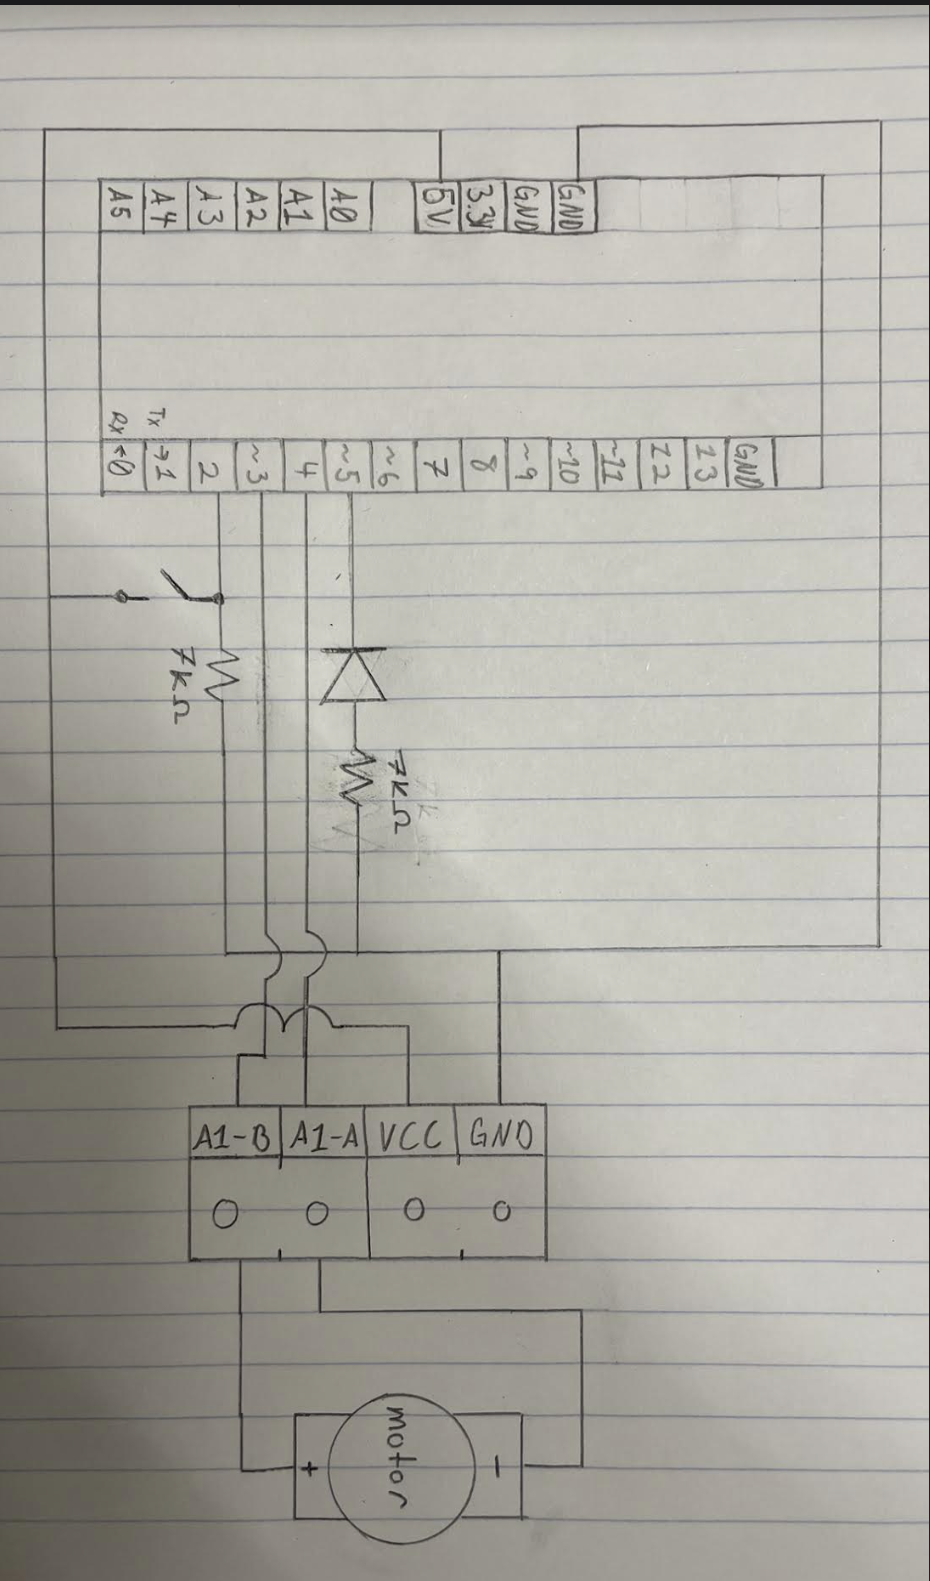 A5
A4
A3
A2
A1
A0
5V
3.3V
GND
GND
RX ←0
TX →1
2
~3
4
~5
~6
7
8
~9
~10
~11
12
13
GND
7kΩ
7kΩ
A1-B
A1-A
VCC
GND
+
motor
-